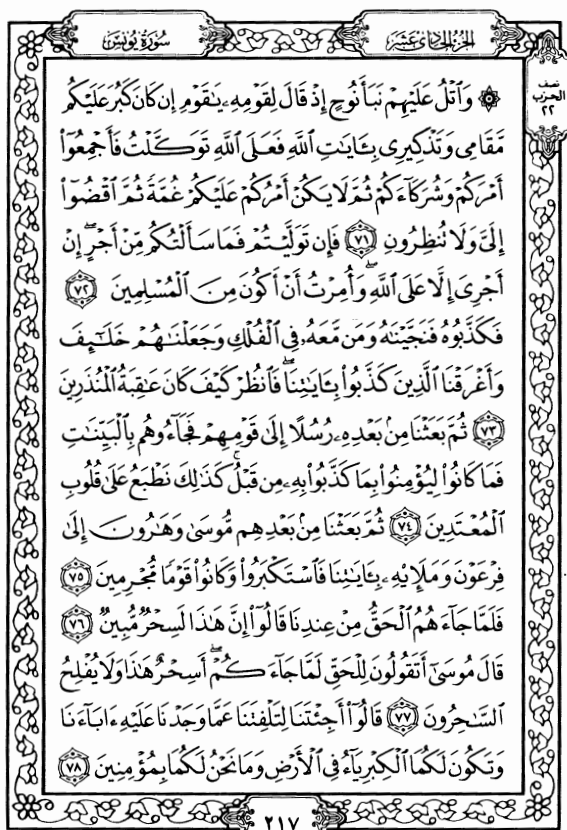 سُورَةُ يُونُسَ
الجزء الحادي عشر
نصف
الحزب
٢٢
۞ وَٱتۡلُ عَلَيۡهِمۡ نَبَأَ نُوحٍ إِذۡ قَالَ لِقَوۡمِهِۦ يَٰقَوۡمِ إِن كَانَ كَبُرَ عَلَيۡكُم
مَّقَامِي وَتَذۡكِيرِي بِـَٔايَٰتِ ٱللَّهِ فَعَلَى ٱللَّهِ تَوَكَّلۡتُ فَأَجۡمِعُوٓاْ
أَمۡرَكُمۡ وَشُرَكَآءَكُمۡ ثُمَّ لَا يَكُنۡ أَمۡرُكُمۡ عَلَيۡكُمۡ غُمَّةٗ ثُمَّ ٱقۡضُوٓاْ
إِلَيَّ وَلَا تُنظِرُونِ ٧١ فَإِن تَوَلَّيۡتُمۡ فَمَا سَأَلۡتُكُم مِّنۡ أَجۡرٍۖ إِنۡ
أَجۡرِيَ إِلَّا عَلَى ٱللَّهِۖ وَأُمِرۡتُ أَنۡ أَكُونَ مِنَ ٱلۡمُسۡلِمِينَ ٧٢
فَكَذَّبُوهُ فَنَجَّيۡنَٰهُ وَمَن مَّعَهُۥ فِي ٱلۡفُلۡكِ وَجَعَلۡنَٰهُمۡ خَلَٰٓئِفَ
وَأَغۡرَقۡنَا ٱلَّذِينَ كَذَّبُواْ بِـَٔايَٰتِنَاۖ فَٱنظُرۡ كَيۡفَ كَانَ عَٰقِبَةُ ٱلۡمُنذَرِينَ
٧٣ ثُمَّ بَعَثۡنَا مِنۢ بَعۡدِهِۦ رُسُلًا إِلَىٰ قَوۡمِهِمۡ فَجَآءُوهُم بِٱلۡبَيِّنَٰتِ
فَمَا كَانُواْ لِيُؤۡمِنُواْ بِمَا كَذَّبُواْ بِهِۦ مِن قَبۡلُۚ كَذَٰلِكَ نَطۡبَعُ عَلَىٰ قُلُوبِ
ٱلۡمُعۡتَدِينَ ٧٤ ثُمَّ بَعَثۡنَا مِنۢ بَعۡدِهِم مُّوسَىٰ وَهَٰرُونَ إِلَىٰ
فِرۡعَوۡنَ وَمَلَإِيْهِۦ بِـَٔايَٰتِنَا فَٱسۡتَكۡبَرُواْ وَكَانُواْ قَوۡمٗا مُّجۡرِمِينَ ٧٥
فَلَمَّا جَآءَهُمُ ٱلۡحَقُّ مِنۡ عِندِنَا قَالُوٓاْ إِنَّ هَٰذَا لَسِحۡرٞ مُّبِينٞ ٧٦
قَالَ مُوسَىٰٓ أَتَقُولُونَ لِلۡحَقِّ لَمَّا جَآءَكُمۡۖ أَسِحۡرٌ هَٰذَا وَلَا يُفۡلِحُ
ٱلسَّٰحِرُونَ ٧٧ قَالُوٓاْ أَجِئۡتَنَا لِتَلۡفِتَنَا عَمَّا وَجَدۡنَا عَلَيۡهِ ءَابَآءَنَا
وَتَكُونَ لَكُمَا ٱلۡكِبۡرِيَآءُ فِي ٱلۡأَرۡضِ وَمَا نَحۡنُ لَكُمَا بِمُؤۡمِنِينَ ٧٨
٢١٧